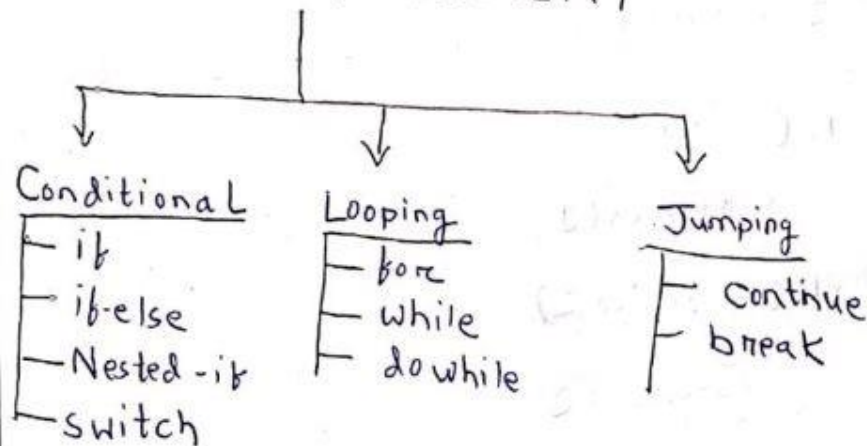 Conditional
if
if-else
Nested-if
switch
Looping
for
while
do while
Jumping
continue
break